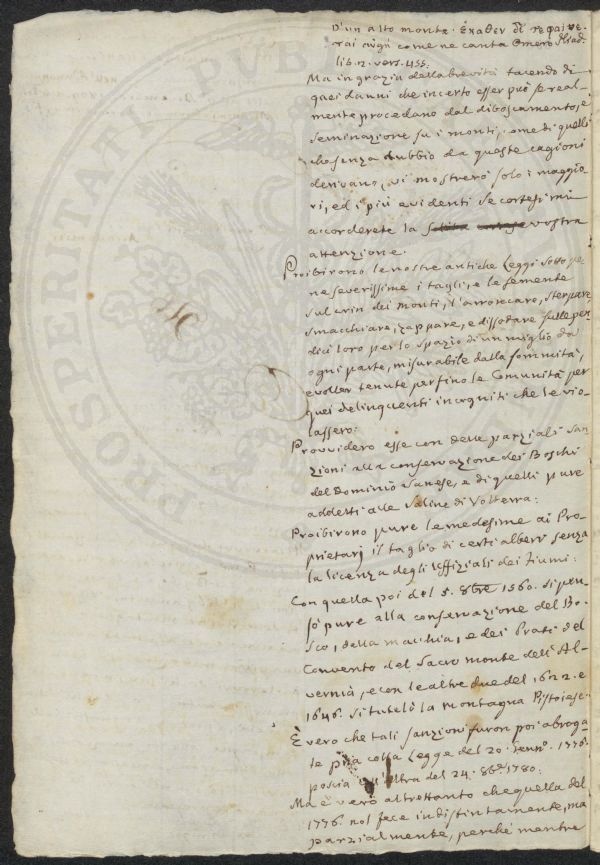 D'un alto monte. Ἐκαθεν δέ
rai augu come ne canta Omero Iliad.
lib. 2. vers. 455:
Ma in grazia della brevità tacendo di
quei danni che incerto esser può se real-
mente procedano dal diboscamento, e
seminazione su i monti, come di quelli
che senza dubbio da queste cagioni
derivano, vi mostrerò solo i maggio-
ri, ed i più evidenti se cortesi mi
accorderete la solita vostra
attenzione.
Proibirono le nostre antiche Leggi sotto pe-
ne severissime i tagli, e le semente
sul crin dei monti, l'arroncare, sterpare,
smacchiare, zappare, e dissodare sulle pen-
dici loro per lo spazio di un miglio da
ogni parte, misurabile dalla sommità,
e voller tenute perfino le Comunità per
quei delinquenti incogniti che le vio-
lassero:
Provvidero esse con delle parziali San-
zioni alla conservazione dei Boschi
del Dominio Sanese, e di quelli pure
addetti alle Saline di Volterra:
Proibirono pure le medesime ai Pro-
prietarj il taglio di certi alberi senza
la licenza degli Uffiziali dei Fiumi:
Con quella poi del 5. 8bre 1560. si pen-
sò pure alla conservazione del Bo-
sco, della macchia, e dei Prati del
Convento del Sacro monte dell'Al-
vernia, e con le altre due del 1622. e
1646. si tutelò la montagna Pistoiese.
È vero che tali sanzioni furon poi abroga-
te pria colla Legge del 20. Genn.º 1776.
poscia coll'altra del 24. 8bre 1780:
Ma è vero altrettanto che quella del
1776. nol fece indistintamente, ma
parzialmente, perché mentre
PROSPERITATI PUBL